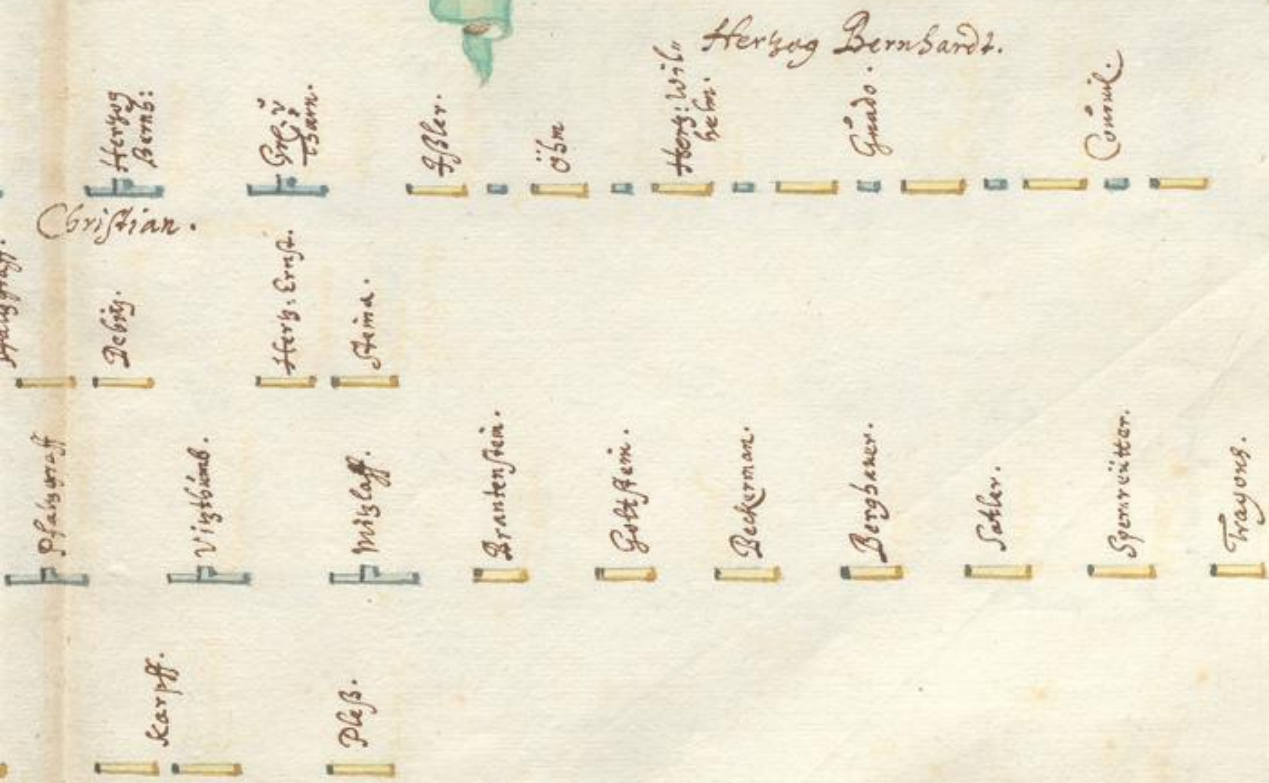 Herzog Bernhardt.
Herzog
Bernh:
Ößler.
Öhm
Hertz: Wil„
helm.
Gúado.
Coúruil.
Christian.
Debitz.
Hertz: Ernst.
Steina.
Pfalzgraff
Vizthúmb.
Mitzlaff.
Brantenstein.
Goltstein.
Beckerman.
Berghawer.
Sattler.
Sperreütter.
Tragons.
Karpff.
Pleß.